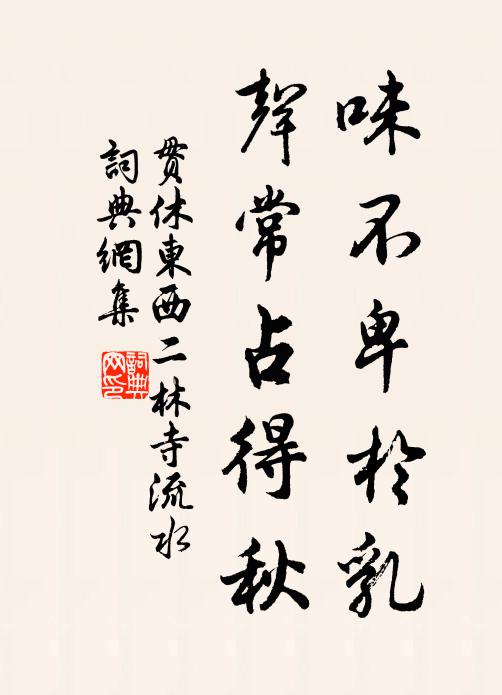 味不卑於乳
聲常占得秋
貫休東西二林寺流水
詞典網集
詞典网印